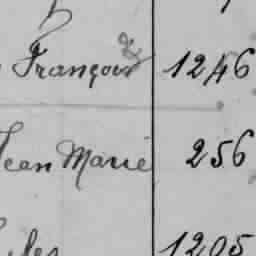 François 1246
Jean Marie 256
1205